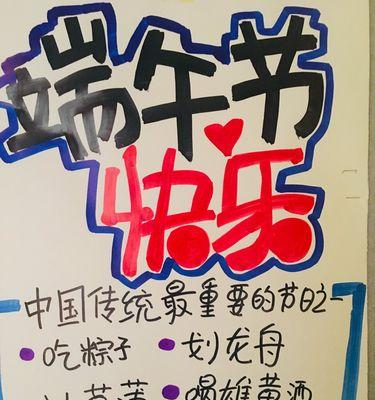 端午节
快乐
中国传统最重要的节日之一
• 吃粽子 • 划龙舟
• 喝雄黄酒